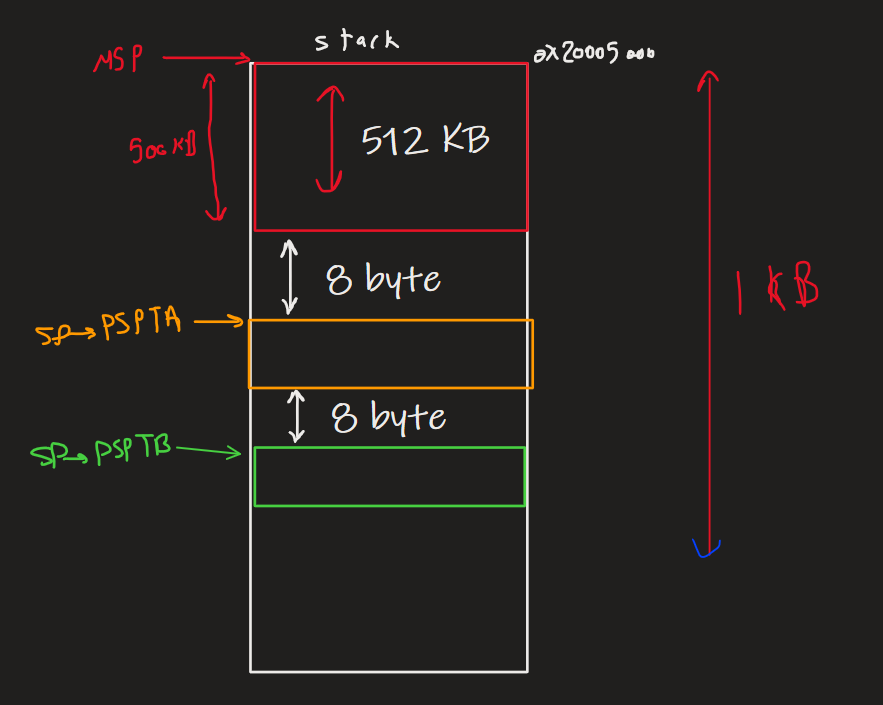 stack
MSP
0x20005000
500KB
512 KB
8 byte
1 KB
SP→PSPTA
8 byte
SP→PSPTB